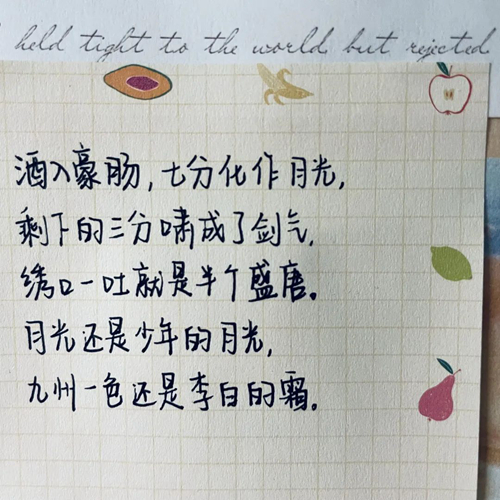 held tight to the world but rejected
酒入豪肠，七分化作月光，
剩下的三分啸成了剑气，
绣口一吐就是半个盛唐。
月光还是少年的月光，
九州一色还是李白的霜。